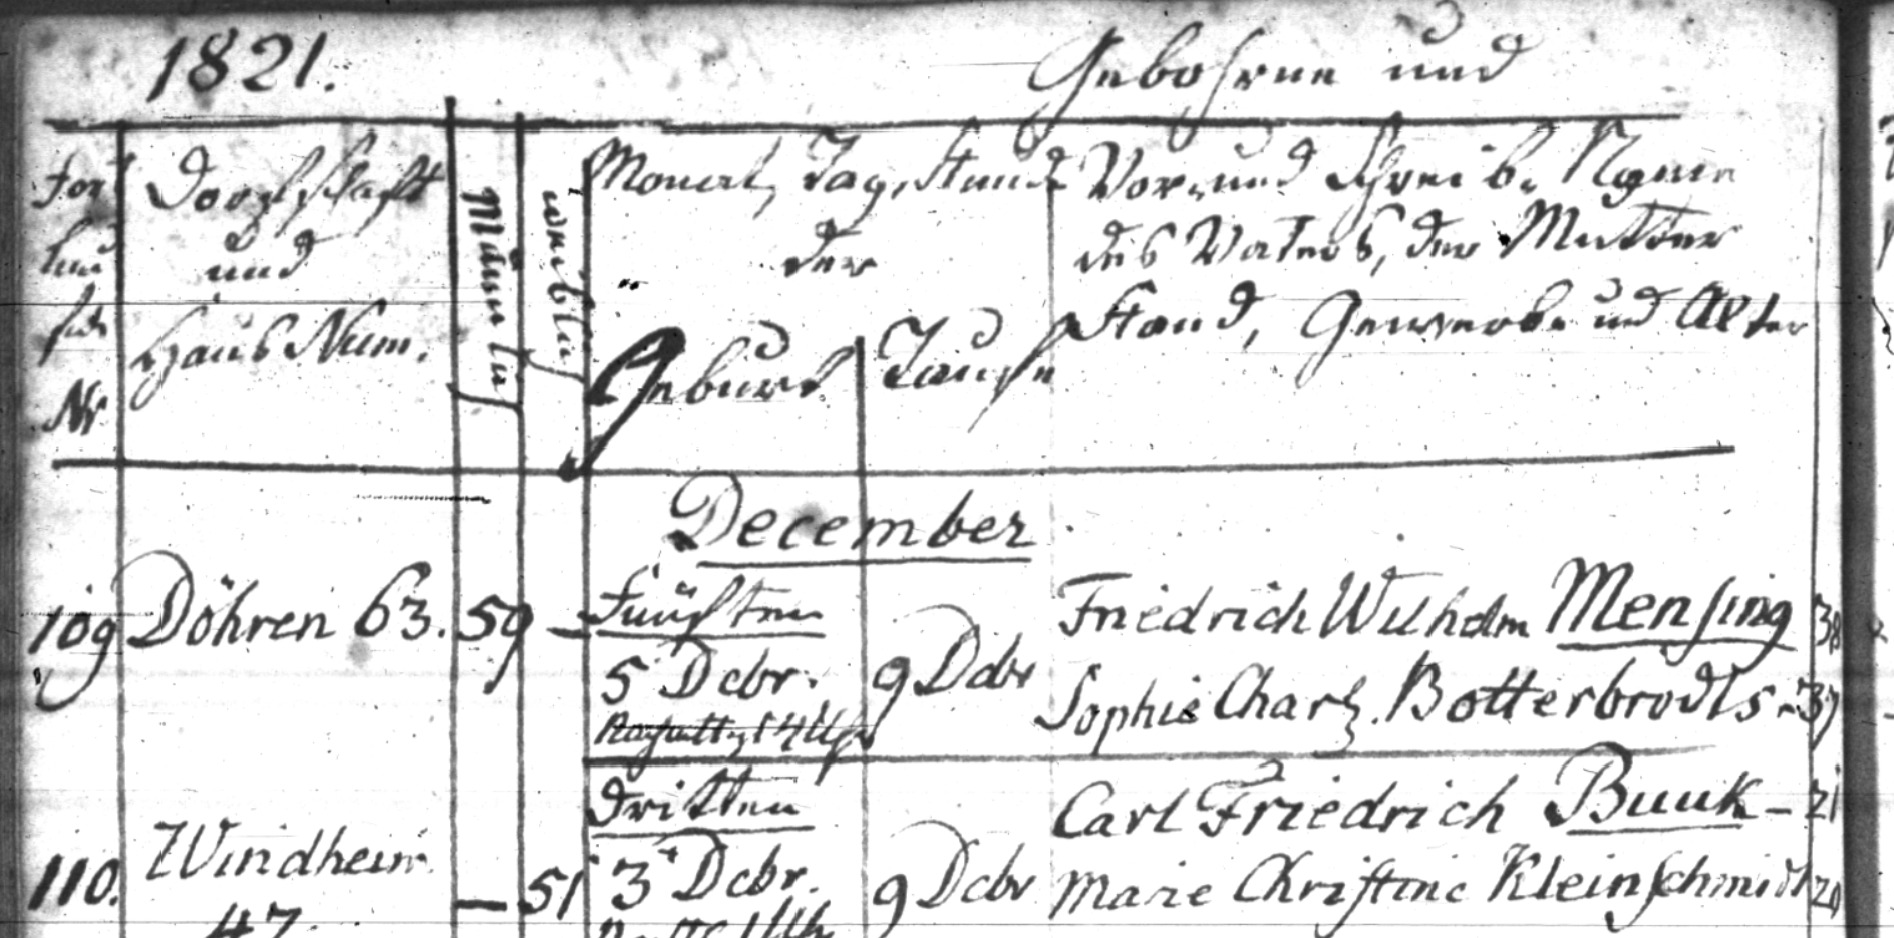 1821.
Gebohrne und
Fort
lau
fde
Nr
Dorfschaft
und
Haus Num.
Männlich
weiblich
Monat, Tag, Stunde
der
Geburt
Taufe
Vor- und Schreib-Name
des Vaters, der Mutter
Stand, Gewerbe und Alter
December
109 Döhren 63. 59 –
Fünften
5 Dcbr.
9 Dcbr
Friedrich Wilhelm Mensing 38
Sophie Charl. Botterbrodts - 37
110. Windheim
47.
– 51
Dritten
3 Dcbr.
9 Dcbr
Carl Friedrich Buuk – 21
Marie Christine Kleinschmidt 20